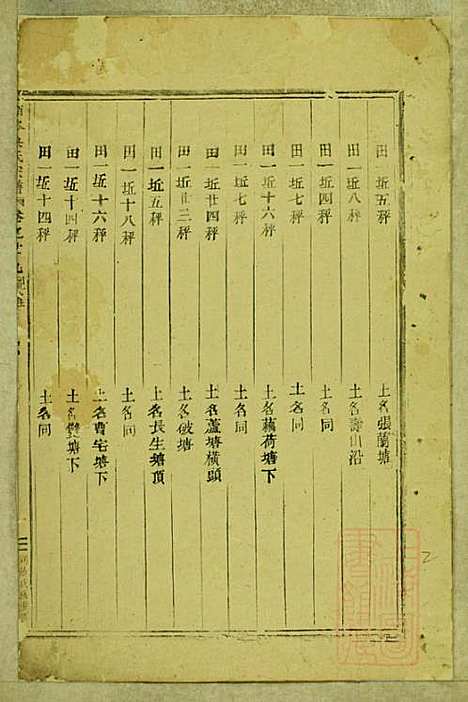 田一坵五秤 土名張蘭塘
田一坵八秤 土名壽山沿
田一坵四秤 土名同
田一坵七秤 土名同
田一坵十六秤 土名藕荷塘下
田一坵七秤 土名同
田一坵廿四秤 土名蘆塘橫頭
田一坵廿三秤 土名破塘
田一坵五秤 土名長生塘頂
田一坵十八秤 土名同
田一坵十六秤 土名曹宅塘下
田一坵十四秤 土名雙塘下
田一坵十四秤 土名同
2